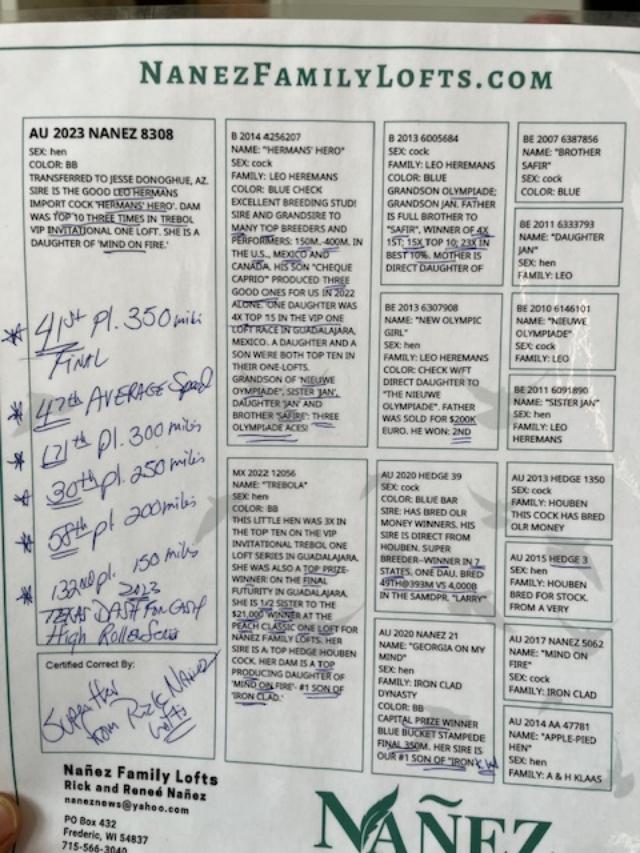 NANEZFAMILYLOFTS.COM
AU 2023 NANEZ 8308
SEX: hen
COLOR: BB
TRANSFERRED TO JESSE DONOGHUE, AZ.
SIRE IS THE GOOD LEO HERMANS
IMPORT COCK 'HERMANS' HERO'. DAM
WAS TOP 10 THREE TIMES IN TREBOL
VIP INVITATIONAL ONE LOFT. SHE IS A
DAUGHTER OF 'MIND ON FIRE.'
* 41st pl. 350 miles
FINAL
* 47th AVERAGE Speed
* 121th pl. 300 miles
* 30th pl. 250 miles
* 58th pl. 200 miles
* 132nd pl. 150 miles
2023
TEXAS DASH For CASH
High Roller Series
Certified Correct By:
from Rick Nanez
Lofts
B 2014 4256207
NAME: "HERMANS' HERO"
SEX: cock
FAMILY: LEO HEREMANS
COLOR: BLUE CHECK
EXCELLENT BREEDING STUD!
SIRE AND GRANDSIRE TO
MANY TOP BREEDERS AND
PERFORMERS: 150M.-400M. IN
THE U.S., MEXICO AND
CANADA. HIS SON "CHEQUE
CAPRIO" PRODUCED THREE
GOOD ONES FOR US IN 2022
ALONE. ONE DAUGHTER WAS
4X TOP 15 IN THE VIP ONE
LOFT RACE IN GUADALAJARA,
MEXICO. A DAUGHTER AND A
SON WERE BOTH TOP TEN IN
THEIR ONE-LOFTS.
GRANDSON OF 'NIEUWE
OYMPIADE", SISTER 'JAN',
DAUGHTER 'JAN' AND
BROTHER 'SAFIRE': THREE
OLYMPIADE ACES!
MX 2022 12056
NAME: "TREBOLA"
SEX: hen
COLOR: BB
THIS LITTLE HEN WAS 3X IN
THE TOP TEN ON THE VIP
INVITATIONAL TREBOL ONE
LOFT SERIES IN GUADALAJARA.
SHE WAS ALSO A TOP PRIZE-
WINNER: ON THE FINAL
FUTURITY IN GUADALAJARA.
SHE IS 1/2 SISTER TO THE
$21,000 WINNER AT THE
PEACH CLASSIC ONE LOFT FOR
NANEZ FAMILY LOFTS. HER
SIRE IS A TOP HEDGE HOUBEN
COCK. HER DAM IS A TOP
PRODUCING DAUGHTER OF
'MIND ON FIRE'- #1 SON OF
'IRON CLAD.'
B 2013 6005684
SEX: cock
FAMILY: LEO HEREMANS
COLOR: BLUE
GRANDSON OLYMPIADE;
GRANDSON JAN. FATHER
IS FULL BROTHER TO
"SAFIR", WINNER OF 4X
1ST; 15X TOP 10; 23X IN
BEST 10%. MOTHER IS
DIRECT DAUGHTER OF
BE 2013 6307908
NAME: "NEW OLYMPIC
GIRL"
SEX: hen
FAMILY: LEO HEREMANS
COLOR: CHECK W/FT
DIRECT DAUGHTER TO
"THE NIEUWE
OLYMPIADE". FATHER
WAS SOLD FOR $200K
EURO. HE WON: 2ND
AU 2020 HEDGE 39
SEX: cock
COLOR: BLUE BAR
SIRE: HAS BRED OLR
MONEY WINNERS. HIS
SIRE IS DIRECT FROM
HOUBEN. SUPER
BREEDER--WINNER IN 7
STATES. ONE DAU. BRED
49TH@393M VS 4,000B
IN THE SAMDPR. "LARRY"
AU 2020 NANEZ 21
NAME: "GEORGIA ON MY
MIND"
SEX: hen
FAMILY: IRON CLAD
DYNASTY
COLOR: BB
CAPITAL PRIZE WINNER
BLUE BUCKET STAMPEDE
FINAL 350M. HER SIRE IS
OUR #1 SON OF "IRON
BE 2007 6387856
NAME: "BROTHER
SAFIR"
SEX: cock
COLOR: BLUE
BE 2011 6333793
NAME: "DAUGHTER
JAN"
SEX: hen
FAMILY: LEO
BE 2010 6146101
NAME: "NIEUWE
OLYMPIADE"
SEX: cock
FAMILY: LEO
BE 2011 6091890
NAME: "SISTER JAN"
SEX: hen
FAMILY: LEO
HEREMANS
AU 2013 HEDGE 1350
SEX: cock
FAMILY: HOUBEN
THIS COCK HAS BRED
OLR MONEY
AU 2015 HEDGE 3
SEX: hen
FAMILY: HOUBEN
BRED FOR STOCK.
FROM A VERY
AU 2017 NANEZ 5062
NAME: "MIND ON
FIRE"
SEX: cock
FAMILY: IRON CLAD
AU 2014 AA 47781
NAME: "APPLE-PIED
HEN"
SEX: hen
FAMILY: A & H KLAAS
Nañez Family Lofts
Rick and Reneé Nañez
naneznews@yahoo.com
PO Box 432
Frederic, WI 54837
715-566-3040
NAÑEZ